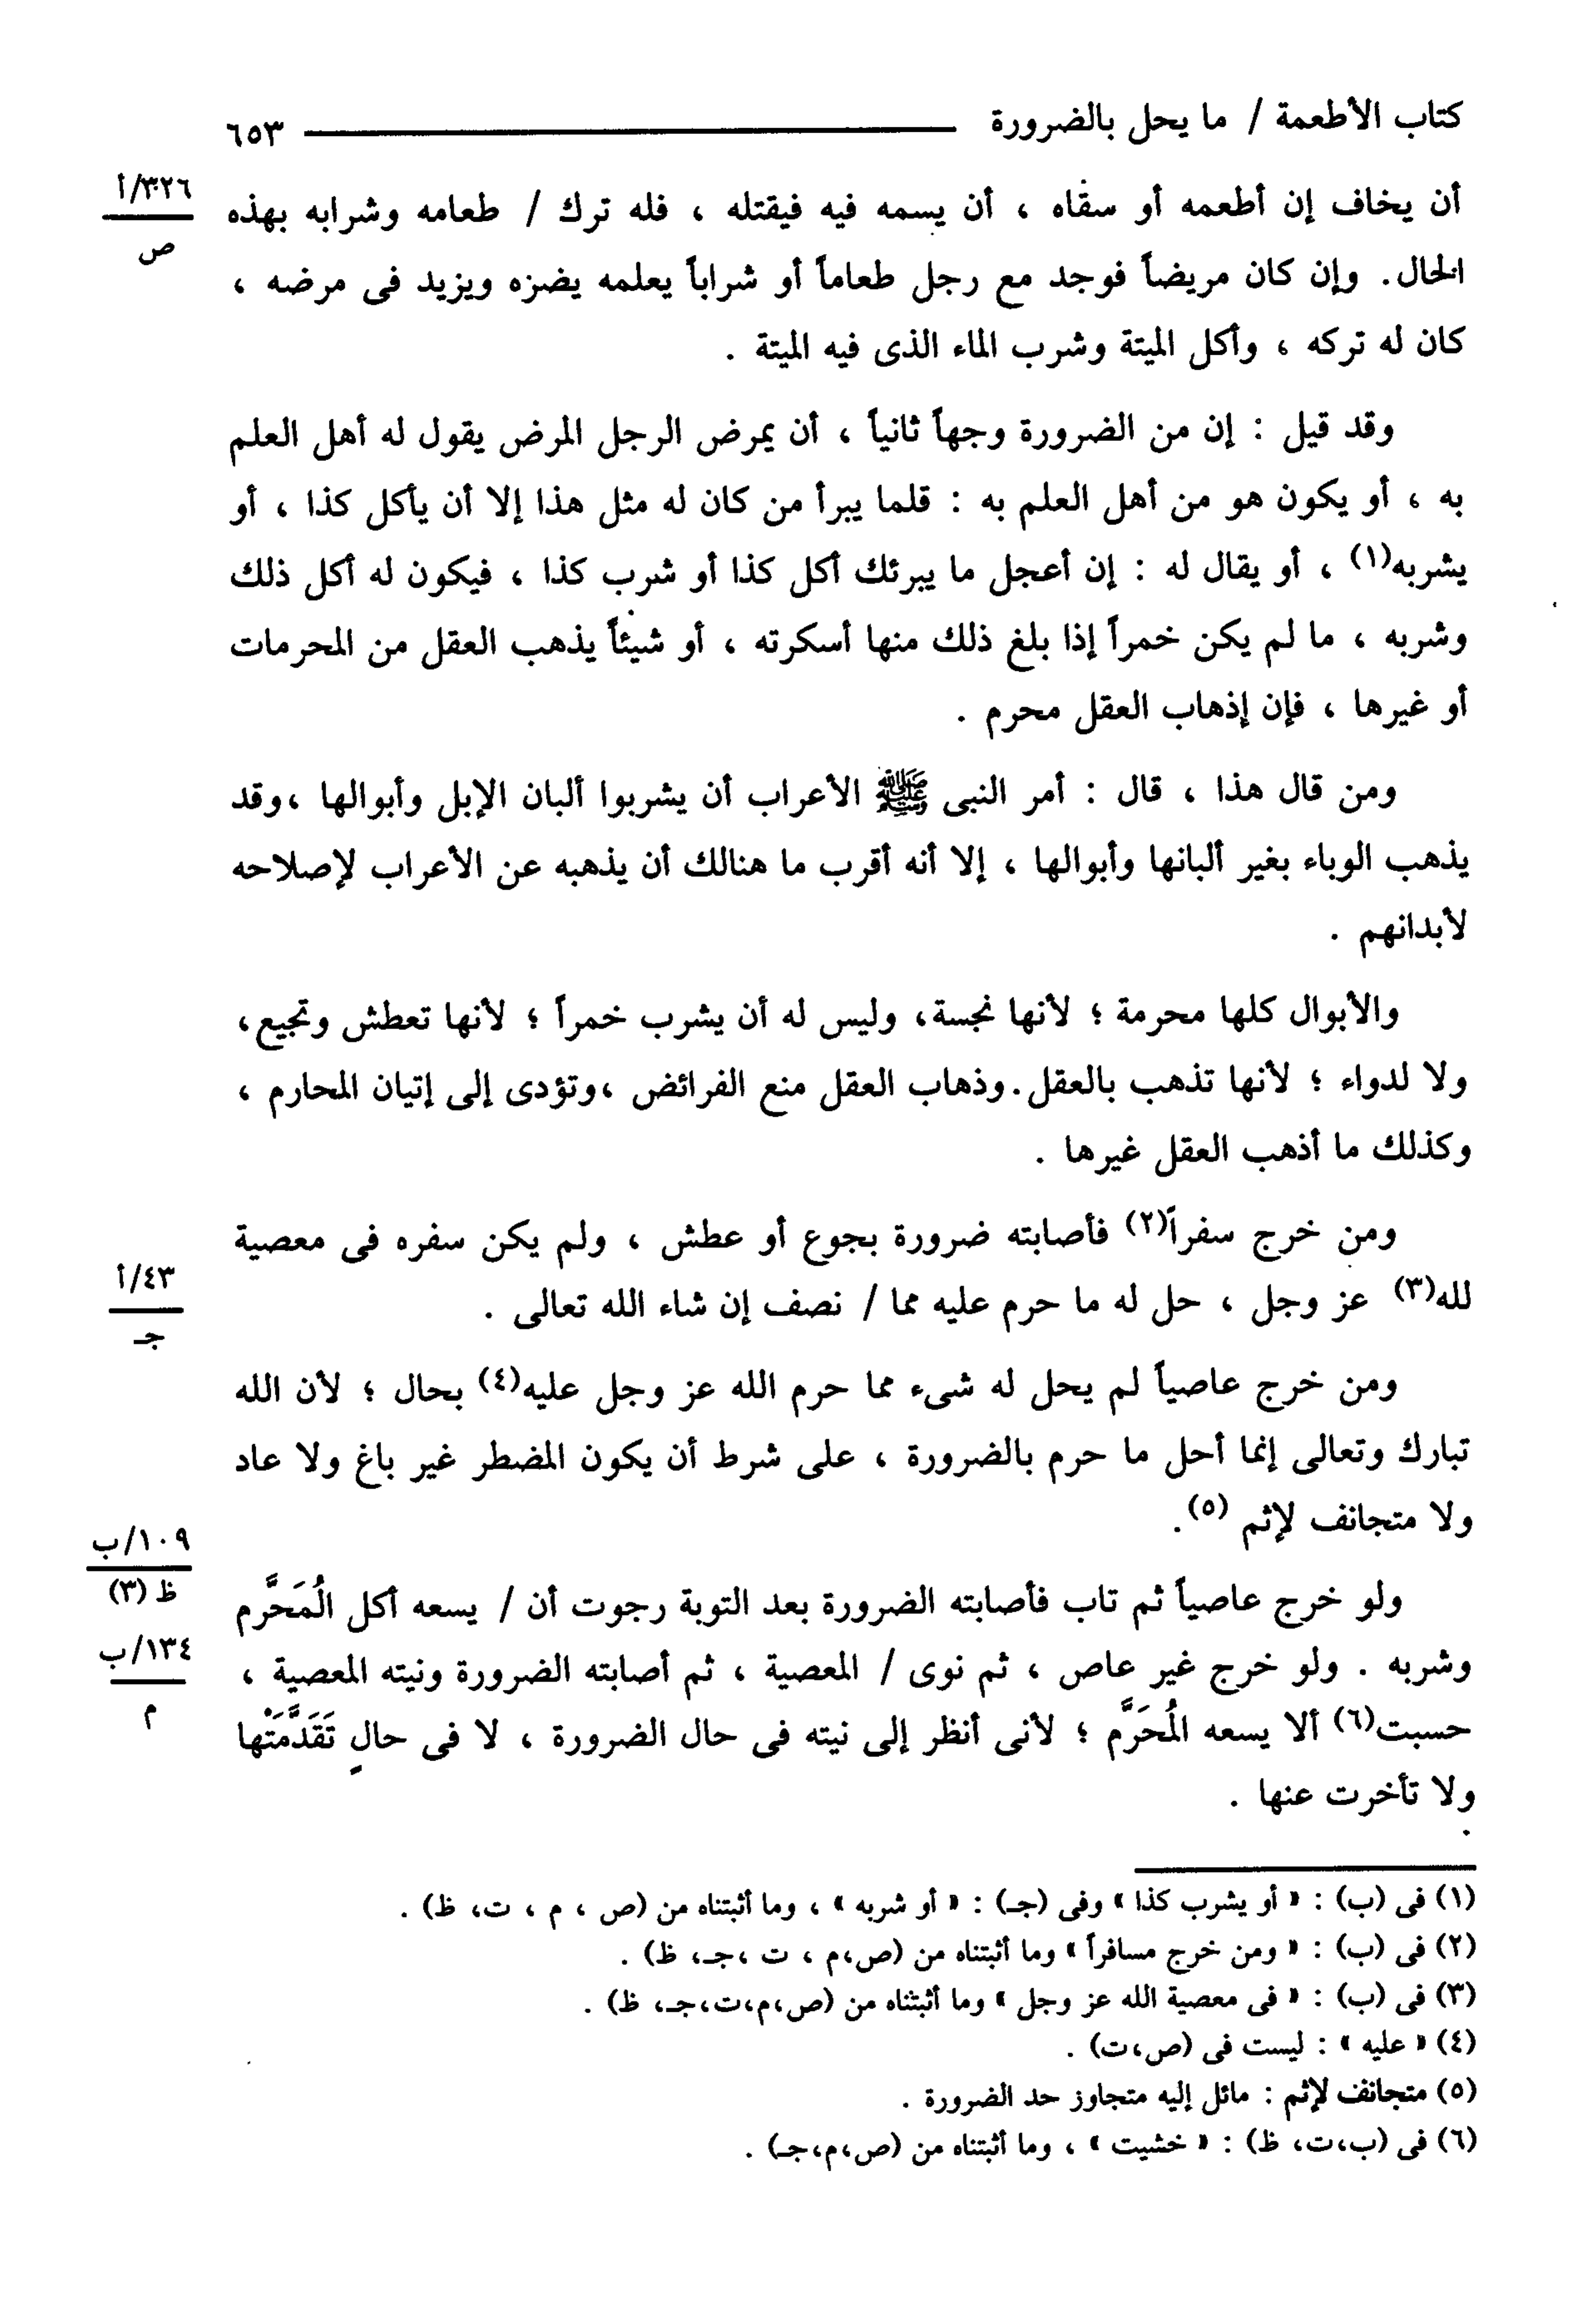 كتاب الأطعمة / ما يحل بالضرورة ــــــــــ ٦٥٣
٣٢٦/أ
ص
أن يخاف إن أطعمه أو سقاه ، أن يسمه فيه فيقتله ، فله ترك / طعامه وشرابه بهذه
الحال. وإن كان مريضاً فوجد مع رجل طعاماً أو شراباً يعلمه يضره ويزيد فى مرضه ،
كان له تركه ، وأكل الميتة وشرب الماء الذى فيه الميتة .
وقد قيل : إن من الضرورة وجهاً ثانياً ، أن يمرض الرجل المرض يقول له أهل العلم
به ، أو يكون هو من أهل العلم به : قلما يبرأ من كان له مثل هذا إلا أن يأكل كذا ، أو
يشربه(١) ، أو يقال له : إن أعجل ما يبرئك أكل كذا أو شرب كذا ، فيكون له أكل ذلك
وشربه ، ما لم يكن خمراً إذا بلغ ذلك منها أسكرته ، أو شيئاً يذهب العقل من المحرمات
أو غيرها ، فإن إذهاب العقل محرم .
ومن قال هذا ، قال : أمر النبى ﷺ الأعراب أن يشربوا ألبان الإبل وأبوالها ،وقد
يذهب الوباء بغير ألبانها وأبوالها ، إلا أنه أقرب ما هنالك أن يذهبه عن الأعراب لإصلاحه
لأبدانهم .
والأبوال كلها محرمة ؛ لأنها نجسة، وليس له أن يشرب خمراً ؛ لأنها تعطش وتجيع،
ولا لدواء ؛ لأنها تذهب بالعقل.وذهاب العقل منع الفرائض ،وتؤدى إلى إتيان المحارم ،
وكذلك ما أذهب العقل غيرها .
ومن خرج سفراً(٢) فأصابته ضرورة بجوع أو عطش ، ولم يكن سفره فى معصية
٤٣/أ
جـ
لله(٣) عز وجل ، حل له ما حرم عليه مما / نصف إن شاء الله تعالى .
ومن خرج عاصياً لم يحل له شىء مما حرم الله عز وجل عليه(٤) بحال ؛ لأن الله
تبارك وتعالى إنما أحل ما حرم بالضرورة ، على شرط أن يكون المضطر غير باغ ولا عاد
ولا متجانف لإثم (٥).
١٠٩/ب
ظ (٣)
ولو خرج عاصياً ثم تاب فأصابته الضرورة بعد التوبة رجوت أن / يسعه أكل الْمُحَرَّم
١٣٤/ب
م
وشربه . ولو خرج غير عاص ، ثم نوى / المعصية ، ثم أصابته الضرورة ونيته المعصية ،
حسبت(٦) ألا يسعه الْمُحَرَّم ؛ لأنى أنظر إلى نيته فى حال الضرورة ، لا فى حالٍ تَقَدَّمَتْها
ولا تأخرت عنها .
(١) فى (ب) : « أو يشرب كذا » وفى (جـ) : « أو شربه » ، وما أثبتناه من (ص ، م ، ت، ظ) .
(٢) فى (ب) : « ومن خرج مسافراً » وما أثبتناه من (ص،م ، ت ،جـ، ظ) .
(٣) فى (ب) : « فى معصية الله عز وجل » وما أثبتناه من (ص،م،ت،جـ، ظ) .
(٤) « عليه » : ليست فى (ص،ت) .
(٥) متجانف لإثم : مائل إليه متجاوز حد الضرورة .
(٦) فى (ب،ت، ظ) : « خشيت » ، وما أثبتناه من (ص،م،جـ) .